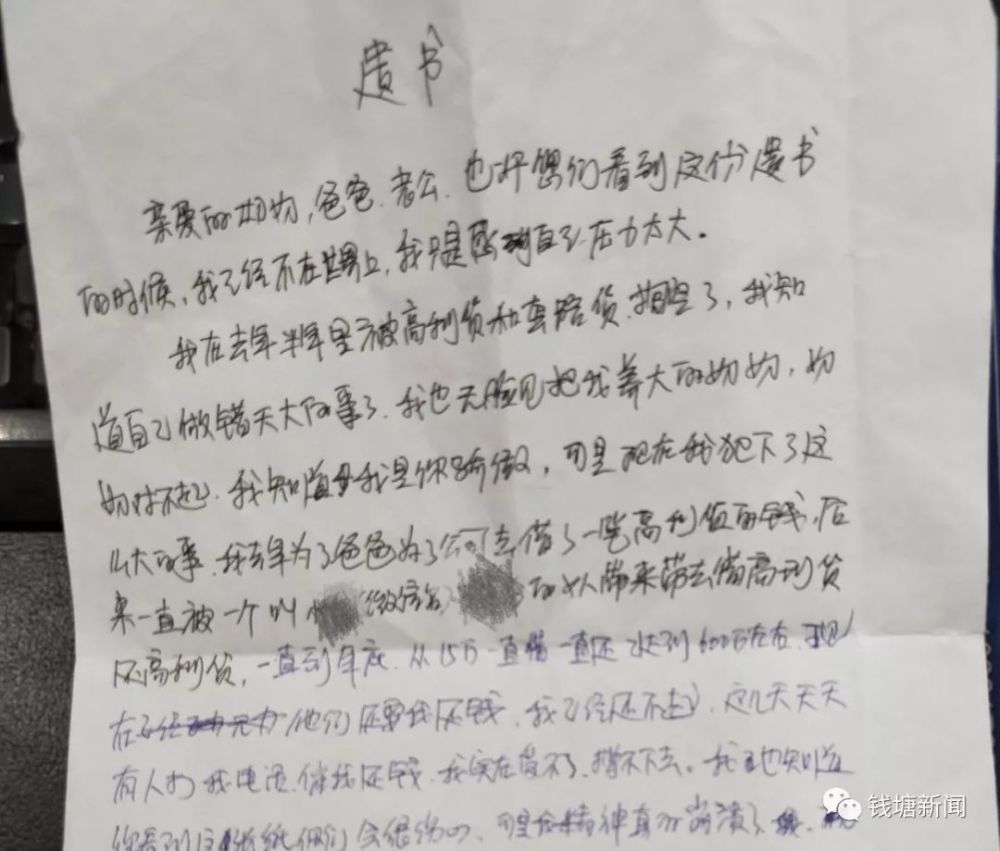 遗书
亲爱的妈妈,爸爸.老公.也许您们看到这份遗书
的时候,我已经不在世界上,我只是感到自己压力太大。
我在去年半年里被高利贷和套路贷.揭了,我知
道自己做错天大的事了.我也无脸见把我养大的妈妈,妈
妈对不起.我知道我是你骄傲,可是现在我犯下了这
么大的事.我去年为了爸爸为了公司去借了一些高利贷的钱,后
来一直被一个叫(微信名)的女人带来带去借高利贷
还高利贷,一直到年底.从15万一直借一直还达到600万左右.现
在他们还要我还钱.我已经还不起.这几天天天
有人打我电话,催我还钱.我实在背不了,撑不下去。我也知道
你看到这张纸你们会很伤心,可是我精神真的崩溃了
钱塘新闻